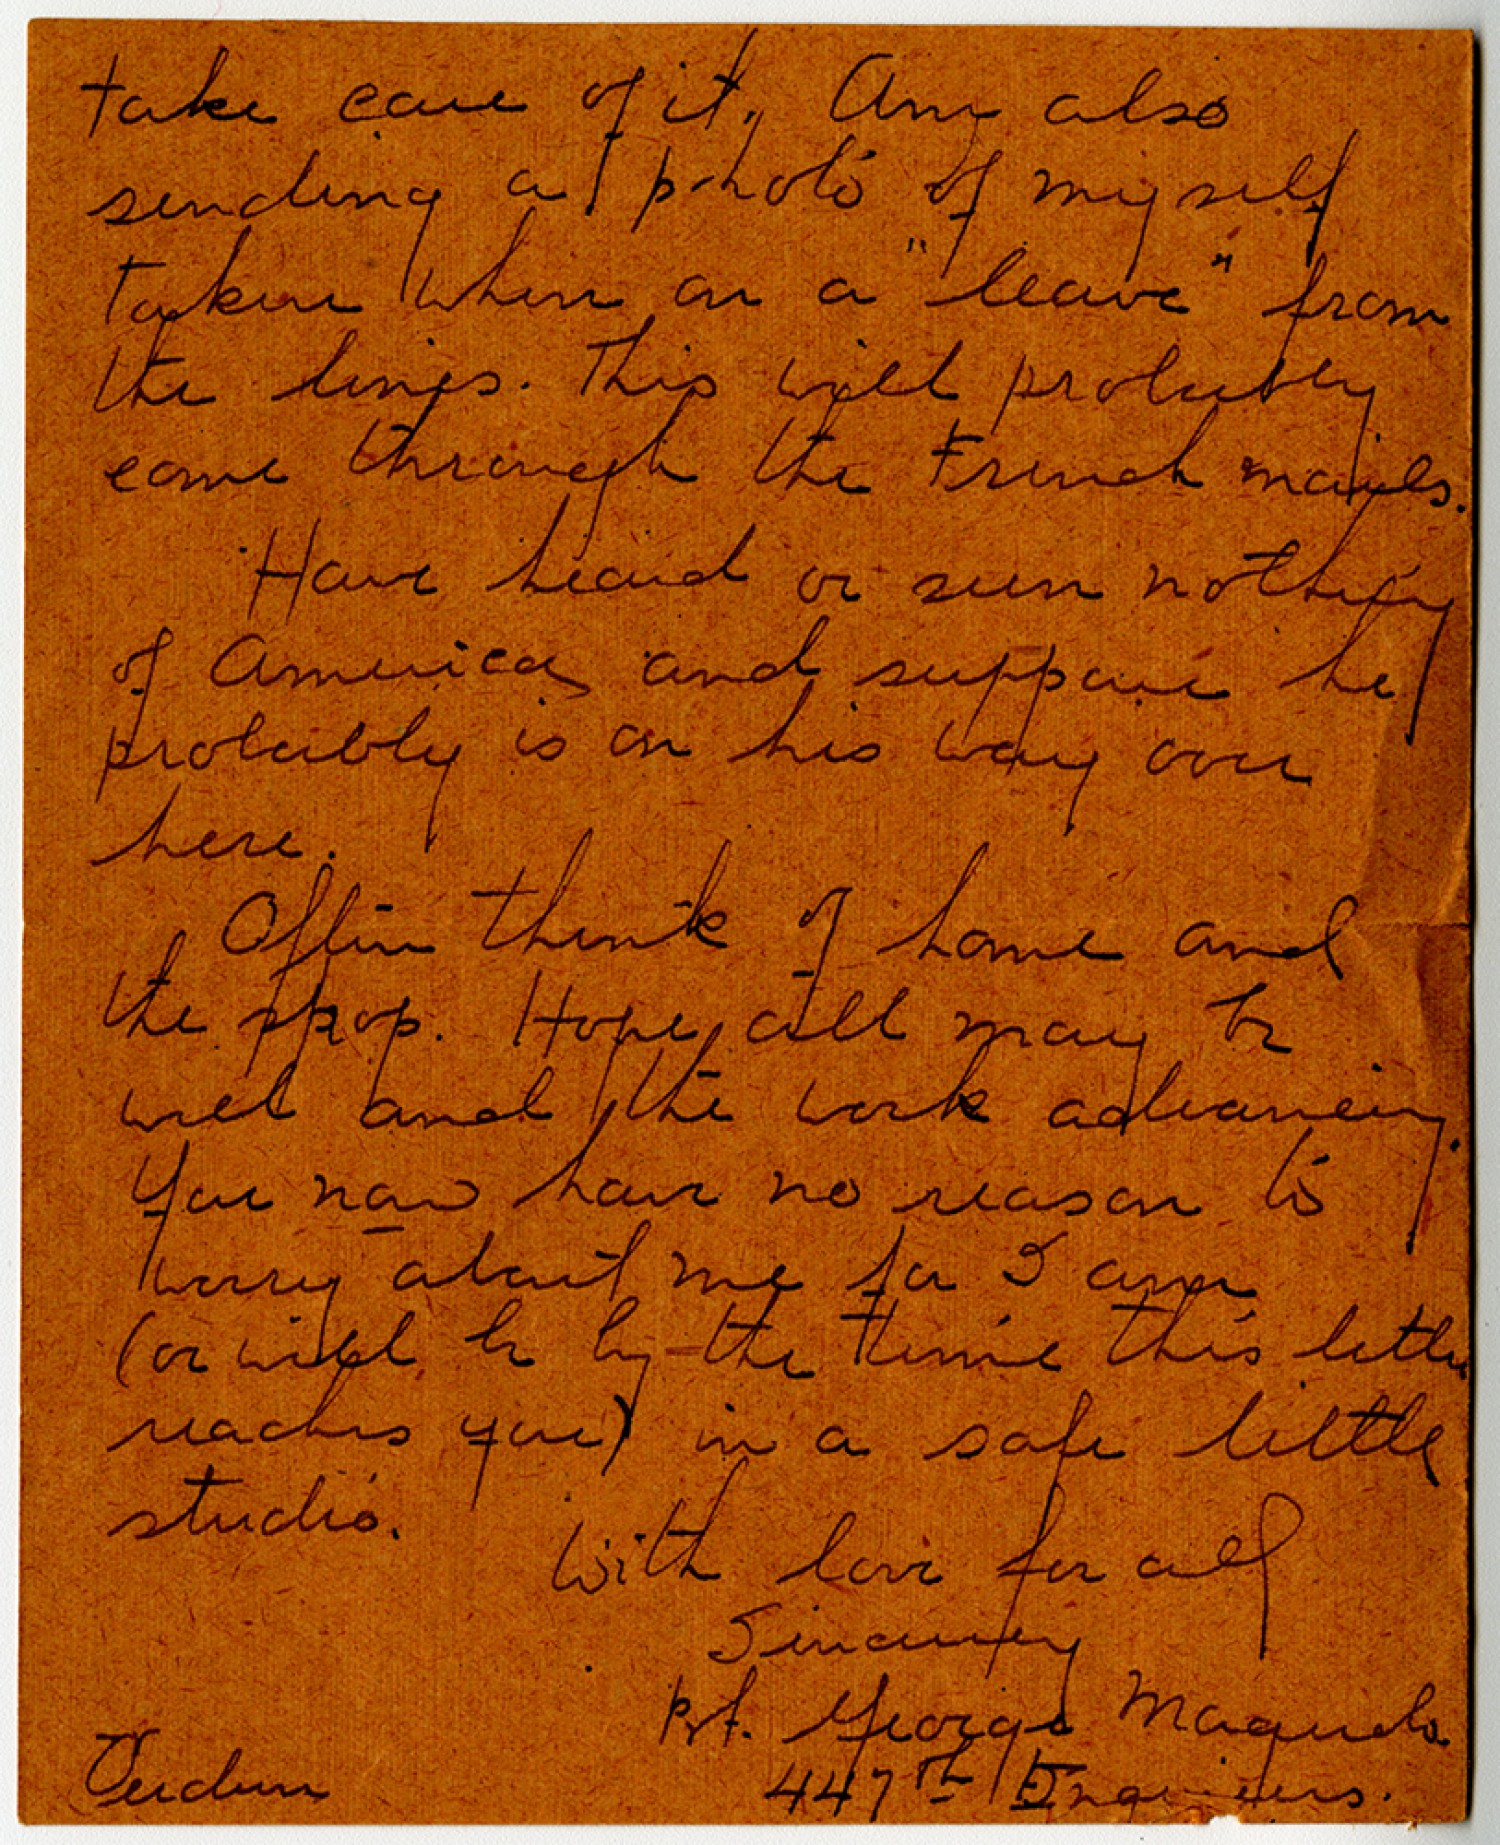 take care of it. Am also
sending a photo of myself
taken when on a "leave" from
the lines. This will probably
come through the French mails.
Have heard or seen nothing
of America and suppose he
probably is on his way over
here.
Often think of home and
the shop. Hope all may be
well and the work advancing.
You now have no reason to
worry about me for I am
(or will be by the time this letter
reaches you) in a safe little
studio.
With love for all
Sincerely
Pvt. George Maguolo
447th Engineers.
Verdun